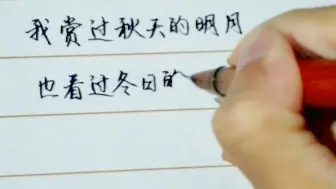 我赏过秋天的明月
也看过冬日的